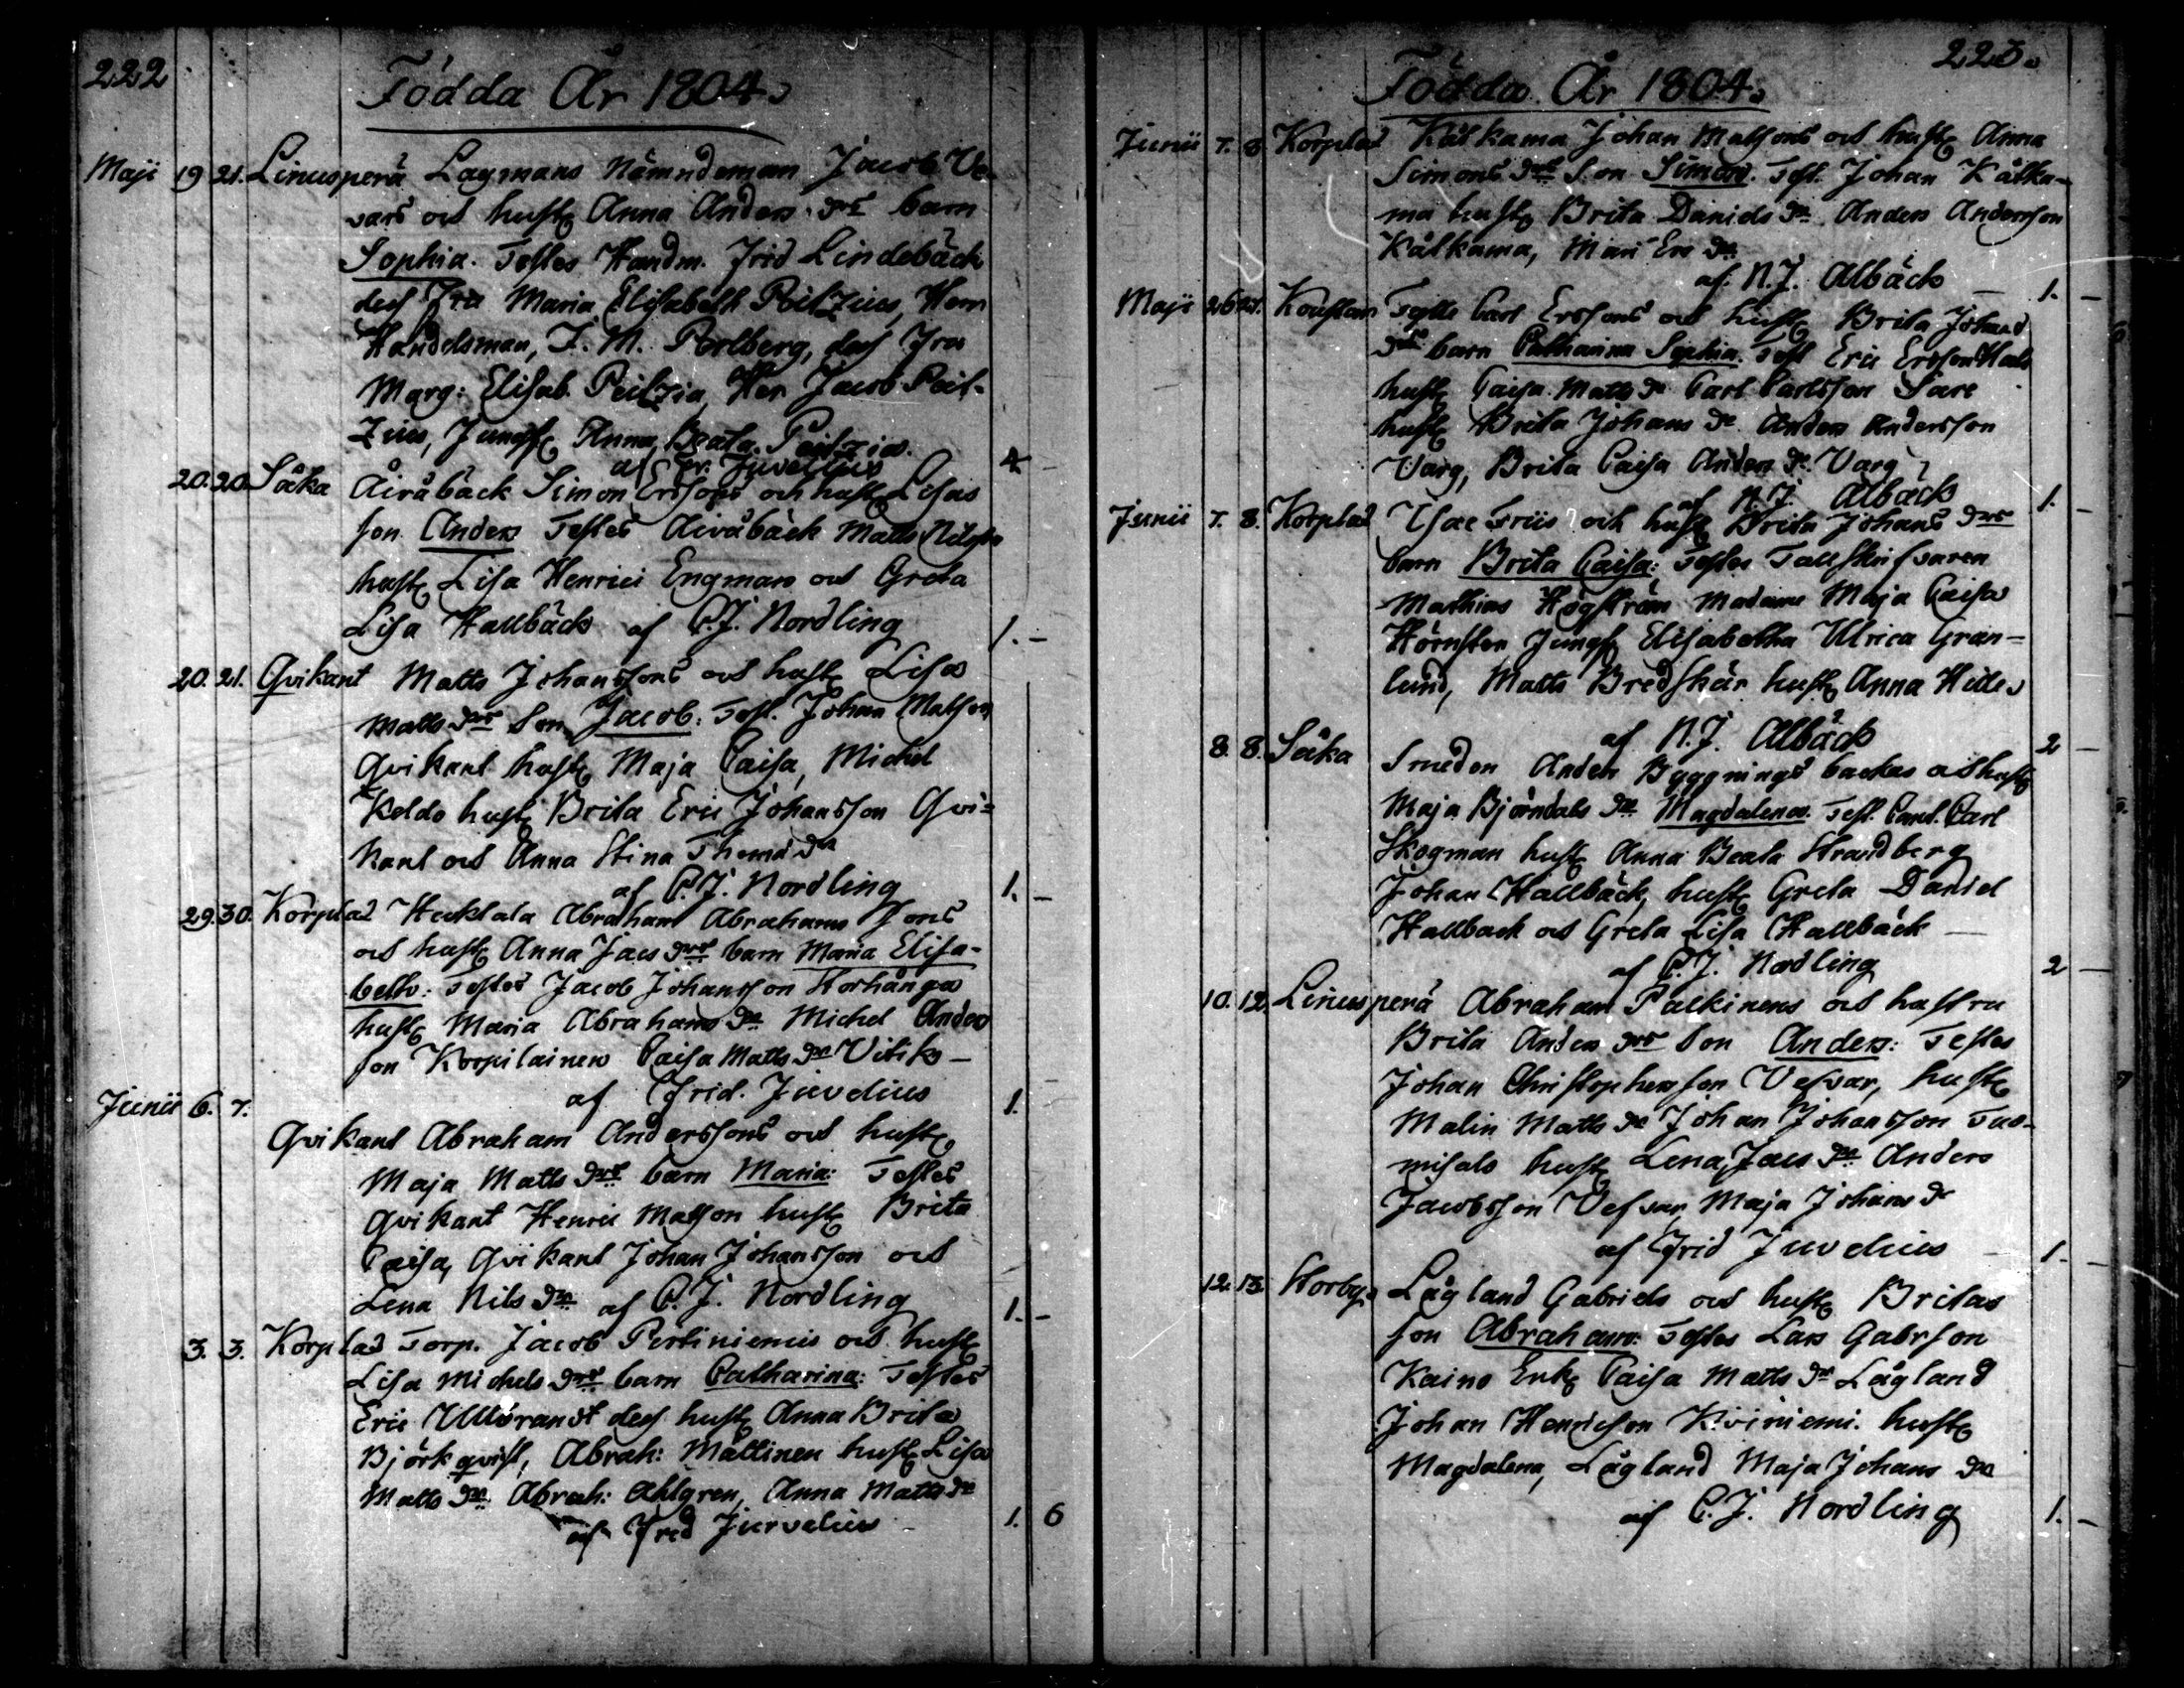 222
Födda År 1804.
Maji 19 21. Linusperä Lagmans Nämndeman Jacob Ve
vars och hustr Anna Anders drs barn
Sophia. Testes Handm. Frid Lindebäck
dess Fru Maria Elisabeth Peitzius, Herr
Handelsman, J. M. Rolberg, dess Fru
Marg: Elisab. Peitzia, Her Jacob Peit-
zius, Jungf Anna Beata Peitzia.
af Fr. Juvelius 4 -
20. 20. Såka Åiråback Simon Erssons och hust Lisas
son Anders Testes Airåbäck Matts Nilsson
hust Lisa Henrici Engman och Greta
Lisa Hallbäck af C.J. Nordling 1. -
20. 21. Qvikant Matts Johanssons och hust Lisa
Matts drs Son Jacob: Test. Johan Matsson
Qvikant hust Maja Caisa, Michel
Keldo hust Brita Eric Johansson Qvi=
kant och Anna Stina Thoma dr
af C.J. Nordling 1. -
29. 30. Korplax Huktala Abraham Abrahams Sons
och hust Anna Jacs drs barn Maria Elisa-
beth: Testes Jacob Johansson Storhånga
hust Maria Abrahams dr Michel Anders
son Korpilainen Caisa Matts dr Vitik -
af Frid. Juvelius 1.
Junii 6. 7.
Qvikant Abraham Anderssons och hust
Maja Matts drs barn Maria: Testes
Qvikant Henric Matson hust Brita
Caisa, Qvikant Johan Johansson och
Lena Nils dr af C.J. Nordling 1. -
3. 3. Korplax Torp. Jacob Pertiniemis och hust
Lisa Michels drs barn Catharina: Testes
Eric Ullbrandt dess hust Anna Brita
Björkqvist, Abrah: Måttinen hust Lisa
Matts dr. Abrah: Ahlgren, Anna Matts dr
af Frid Jurvelius - 1. 6
223.
Födda År 1804.
Junii 7. 8. Korplax Kålkama Johan Matsons och hust Anna
Simons drs Son Simon. Test. Johan Kålka-
ma hust Brita Daniels dr Anders Andersson
Kålkama, Mari Ers dr.
af. N.J. Albäck - 1. -
Maji 26 27. Fyllt Carl Erssons och hust Brita Johans
drs barn Catharina Sophia. Test Eric Ersson Hals
hust Caisa Matts dr Carl Carlsson Sare
hust Brita Johans dr. Anders Andersson
Varg, Brita Caisa Anders dr. Varg
af N.J. Albäck 1. -
Junii 7. 8. Korplax Isac Friis och hust Brita Johans drs
barn Brita Caisa: Testes
Mathias Högström Madame Maja Caisa
Hörnsten Jungf Elisabetha Ulrica Gran-
lund, Matts Bredskär hust Anna Helle
af N.J. Albäck 2 -
8. 8. Såka Smeden Anders Byggnings backas och hust
Maja Björndals dr Magdalena. Test. Cant. Carl
Skogman hust Anna Beata Strandberg
Johan Hallbäck, hust Greta Daniel
Hallback och Greta Lisa Hallbäck -
af C.J. Nordling 2 -
10. 12. Linusperä Abraham Palkinens och hustru
Brita Anders drs Son Anders: Testes
Johan Christophersson Vefvar, hust
Malin Matts dr Johan Johansson Tuo-
misalo hust Lena Jacs dr Anders
Jacobsson Vefvar, Maja Johans dr
af Frid Juvelius - 1. -
12. 13. Storby Lågland Gabriels och hust Britas
son Abraham: Testes Lars Gabrson
Kaino Enk Caisa Matts dr Lågland
Johan Henricson Kiviniemi. hust
Magdalena, Lågland Maja Johans dr
af C.J. Nordling 1. -